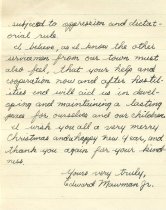 subjected to oppression and dictat-
orial rule.
I believe, as I know the other
servicemen from our town must
also feel, that your help and
cooperation now and after hostil-
ities end will aid us in devel-
oping and maintaining a lasting
peace for ourselves and our children.
I wish you all a very merry
Christmas and happy New Year, and
thank you again for your kind-
ness.
Yours very truly,
Edward Mewman Jr.